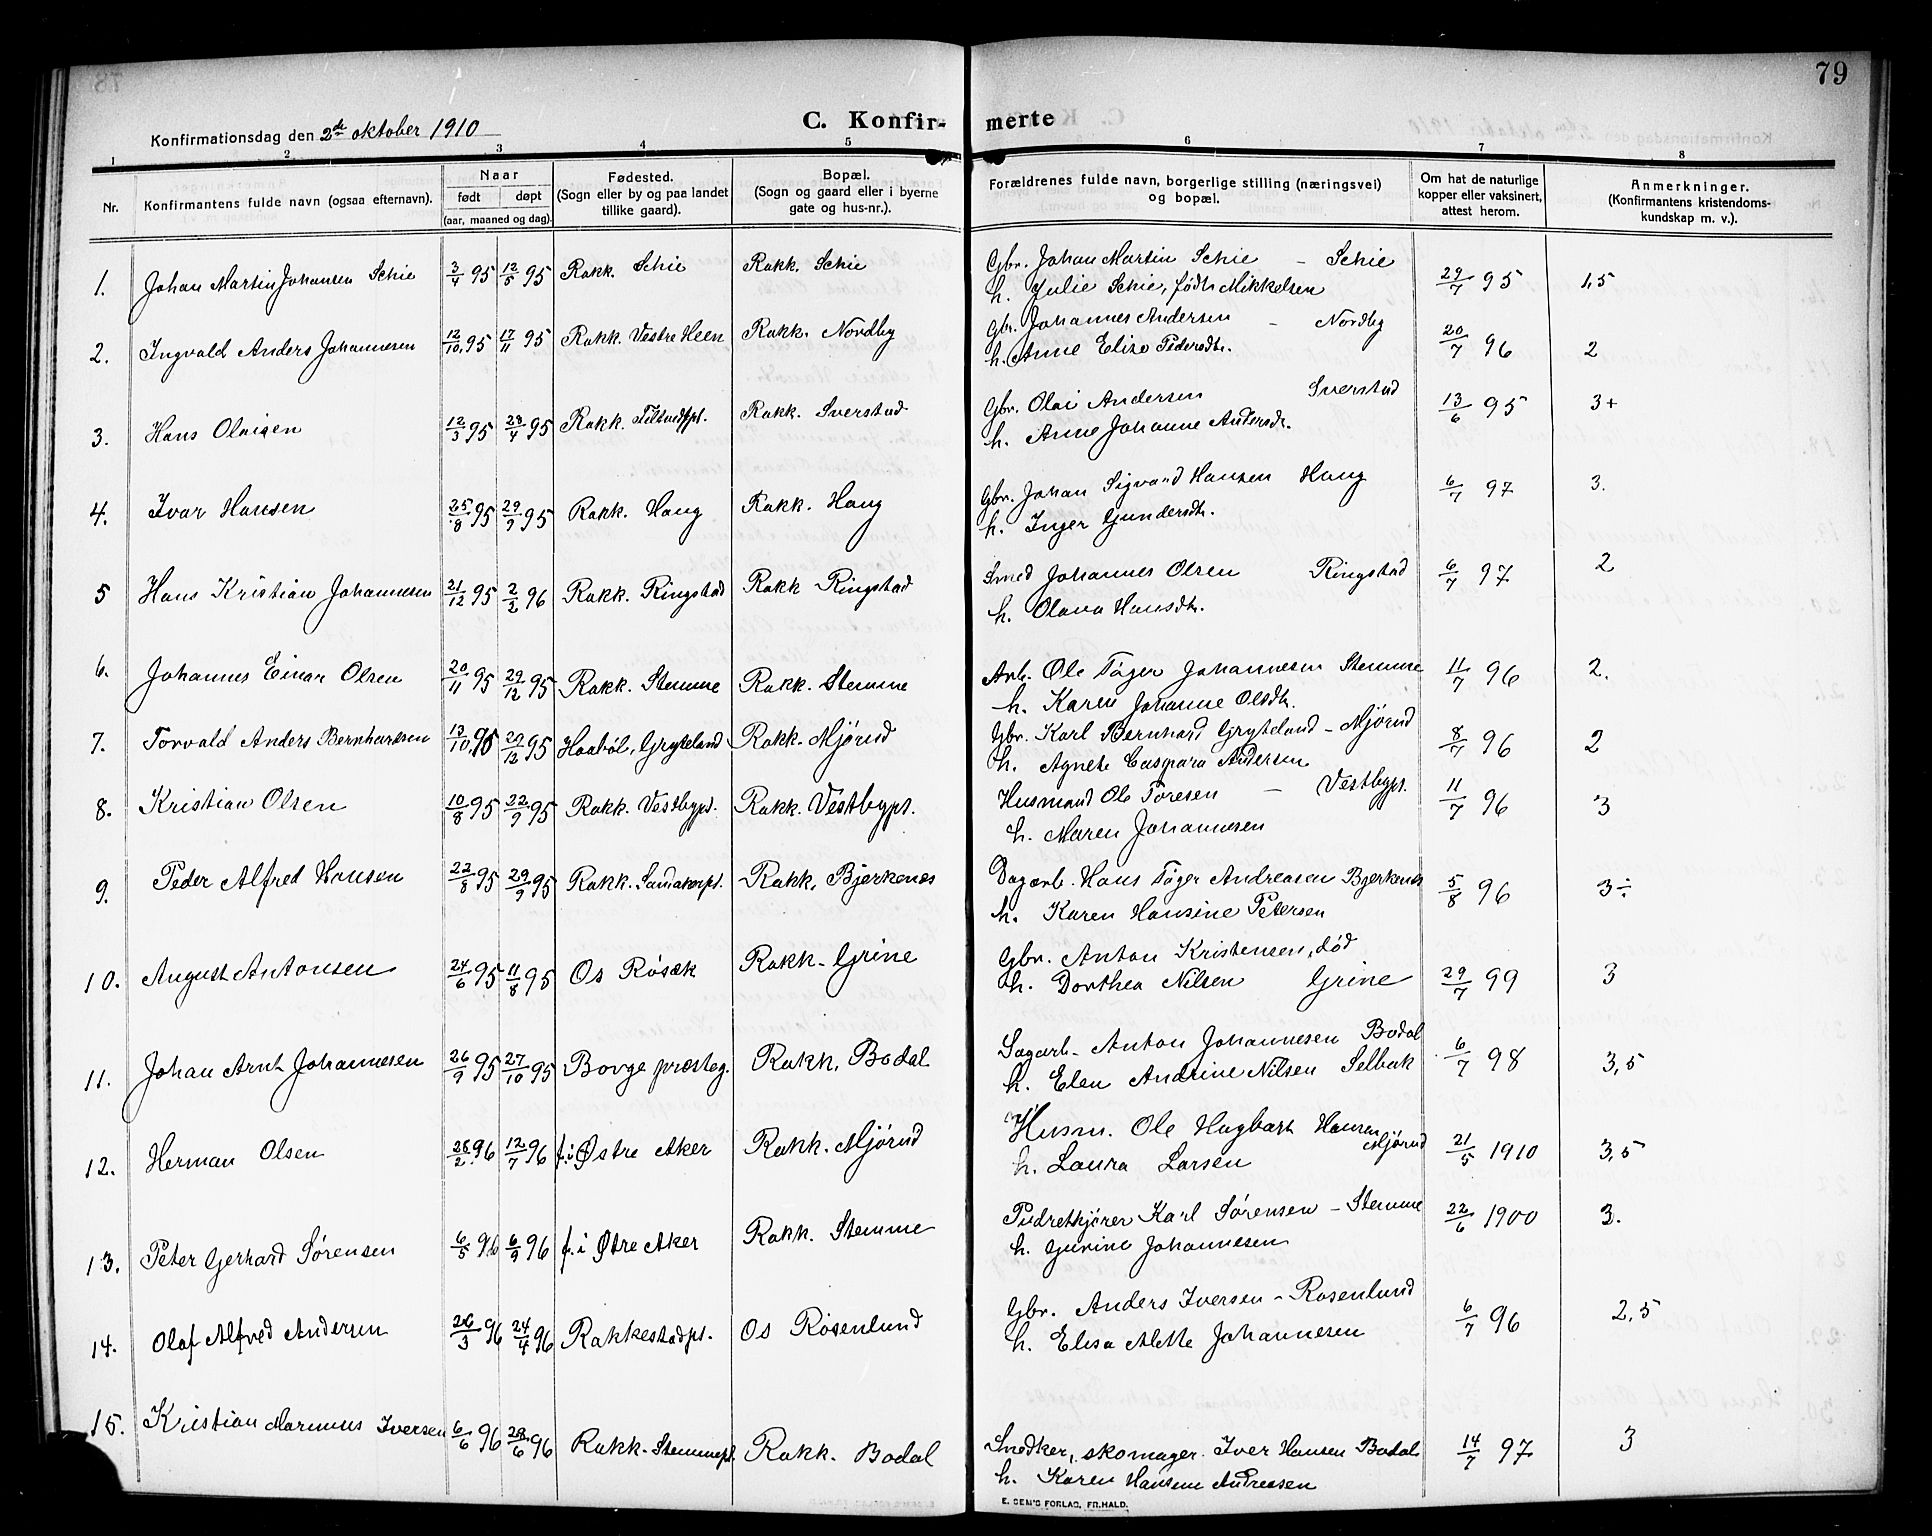 79
Konfirmationsdag den 2de oktober 1910
C. Konfir- merte
1 2 3 4 5 6 7 8
Nr. Konfirmantens fulde navn (ogsaa efternavn). Naar født døpt (aar, maaned og dag). Fødested. (Sogn eller by og paa landet tillike gaard). Bopæl. (Sogn og gaard eller i byerne gate og hus-nr.). Forældrenes fulde navn, borgerlige stilling (næringsvei) og bopæl. Om hat de naturlige kopper eller vaksinert, attest herom. Anmerkninger. (Konfirmantens kristendoms- kundskap m. v.).
1. Johan Martin Johansen Schie 3/4 95 12/5 95 Rakk. Schie Rakk. Schie Gbr. Johan Martin Schie – Schie 29/7 95 1,5
h. Julie Schie, født Mikkelsen
2. Ingvald Anders Johannesen 12/10 95 17/11 95 Rakk. Vestre Heen Rakk. Nordby Gbr. Johannes Andersen – Nordby 20/7 96 2
h. Anne Elise Pedersdtr.
3. Hans Olaisen 12/3 95 28/4 95 Rakk. Rakk. Sverstad Gbr. Olai Andersen Sverstad 13/6 95 3+
h. Anne Johanne Andersdtr.
4. Ivar Hansen 25/8 95 29/9 95 Rakk. Haug Rakk. Haug Gbr. Johan Sigvard Hansen Haug 6/7 97 3.
h. Inger Gundersdtr.
5 Hans Kristian Johannesen 21/12 95 2/2 96 Rakk. Ringstad Rakk Ringstad Smed Johannes Olsen Ringstad 6/7 97 2
h. Olava Hansdtr.
6. Johannes Einar Olsen 20/11 95 29/12 95 Rakk. Stemme Rakk. Stemme Arb. Ole Tøger Johannesen Stemme 11/7 96 2.
h. Karen Johanne Olsdtr.
7. Torvald Anders Bernhardsen 13/10 95 29/12 95 Haabøl, Gryteland Rakk. Mjørud Gbr. Karl Bernhard Gryteland – Mjørud 8/7 96 2
h. Agnete Caspara Andersen
8. Kristian Olsen 10/8 95 22/9 95 Rakk. Vestbypl. Rakk. Vestbypl. Husmand Ole Toresen – Vestbypl. 11/7 96 3
h. Maren Johannesen
9. Peder Alfred Hansen 22/8 95 29/9 95 Rakk. Sandakerpl. Rakk. Bjerkenes Dagarb. Hans Tøger Andreasen Bjerkenes 5/8 96 3÷
h. Karen Hansine Petersen
10. August Antonsen 24/6 95 11/8 95 Os Røsæk Rakk. Grine Gbr. Anton Kristensen, død
h. Dorthea Nilsen Grine 29/7 99 3
11. Johan Arnt Johannesen 26/9 95 27/10 95 Borge præsteg. Rakk. Bodal Sagarb. Anton Johannesen Bodal 6/7 98 3,5
h. Elen Andrine Nilsen Selbak
12. Herman Olsen 28/2 96 12/7 96 f. i Østre Aker Rakk. Mjørud Husm. Ole Hagbart Hansen Mjørud 21/5 1910 3,5
h. Laura Larsen
13. Peter Gerhard Sørensen 6/5 96 6/9 96 f. i Østre Aker Rakk. Stemme Pudretkjører Karl Sørensen – Stemme 22/6 1900 3.
h. Gurine Johannesen
14. Olaf Alfred Andersen 26/3 96 24/4 96 Rakkestadpl. Os Rosenlund Gbr. Anders Iversen – Rosenlund 6/7 96 2,5
h. Elisa Alette Johannesen
15. Kristian Marinius Iversen 6/6 96 28/6 96 Rakk. Stemmepl. Rakk. Bodal Snedker, skomager. Iver Hansen Bodal 14/7 97 3
h. Karen Hansine Andreasen
E. SEM'S FORLAG, FR.HALD.